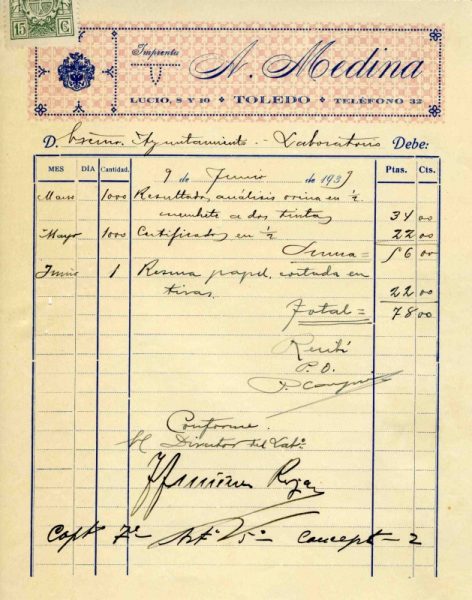 15 C
Imprenta
A. Medina
LUCIO, 8 Y 10 TOLEDO TELÉFONO 32
D. Excmo. Ayuntamiento - Laboratorio Debe:
MES DÍA Cantidad. 9 de Junio de 1933 Ptas. Cts.
1000 Resultados análisis orina en 1/2
a dos tintas 34 00
Mayo 1000 Certificados en 1/2 22 00
Suma = 56 00
Junio 1 Resma papel, cortada en
tiras. 22 00
Total = 78 00
Recibí
P. O.
Conforme
El Director del Labº
Capº 7º Artº 5º Concept- 2